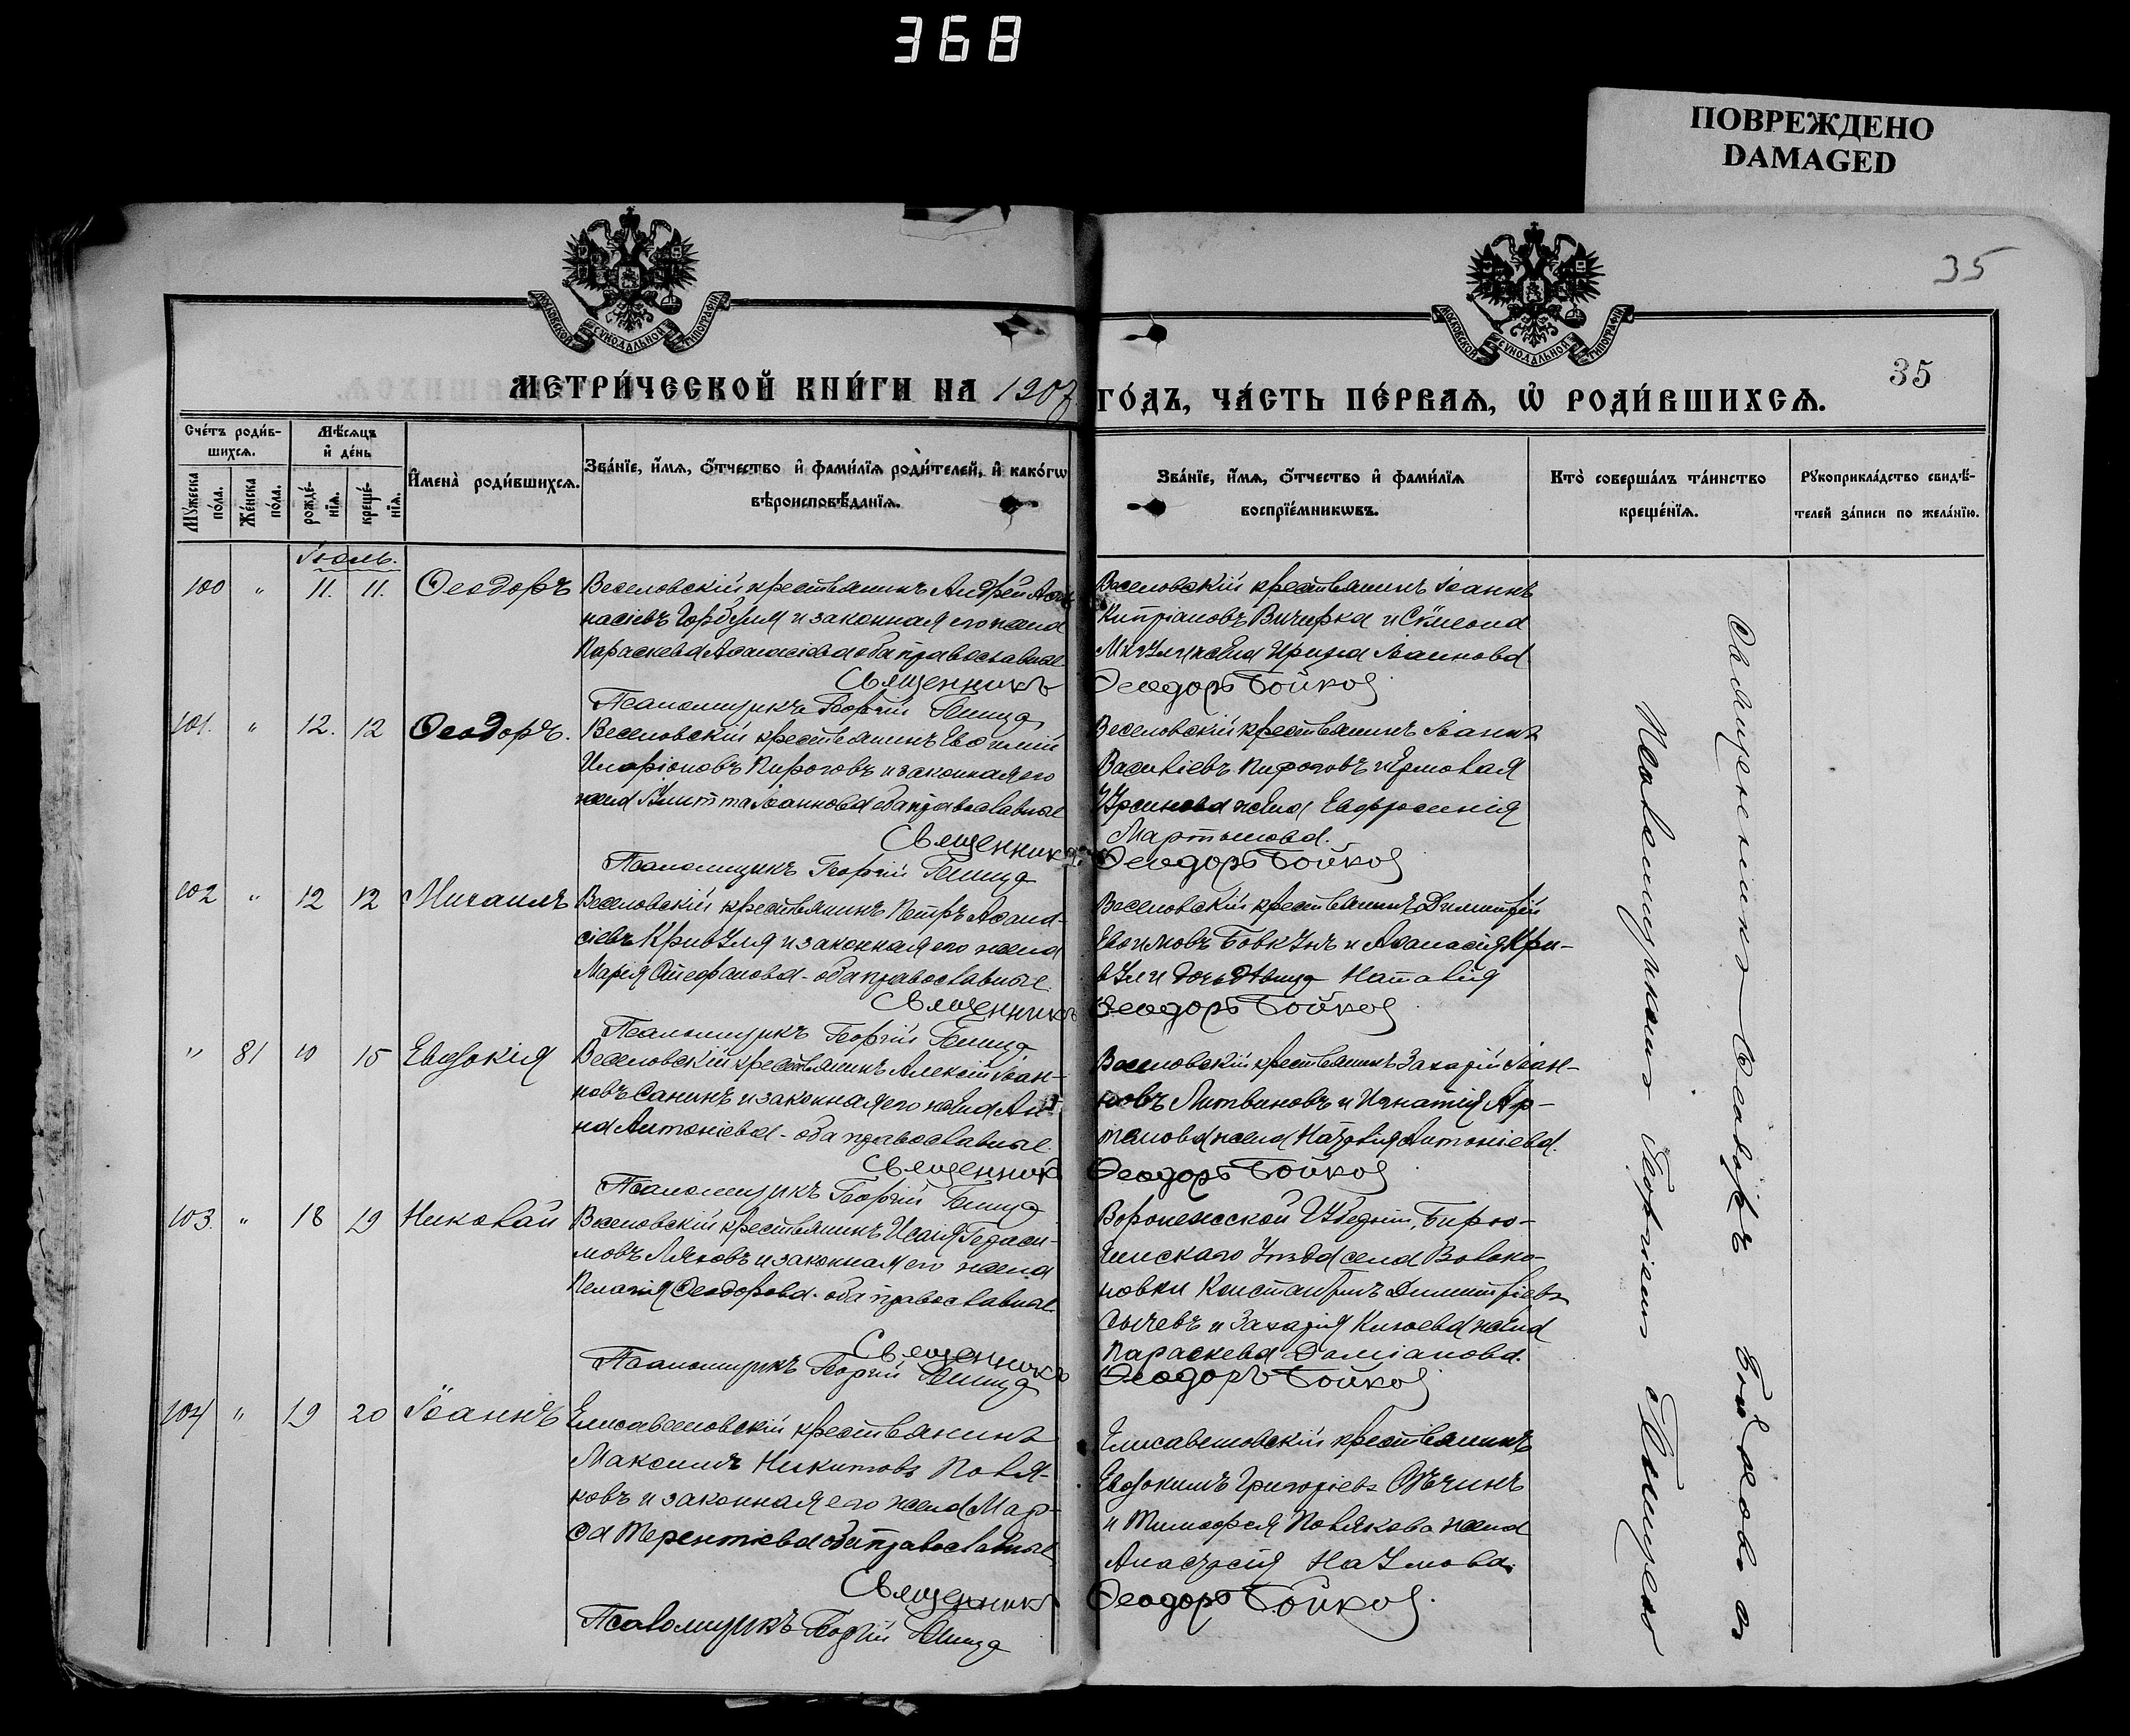 368
ПОВРЕЖДЕНО
DAMAGED
МОСКОВСКОЙ СѴНОДАЛЬНОЙ ТИПОГРАФІИ
МОСКОВСКОЙ СѴНОДАЛЬНОЙ ТИПОГРАФІИ
35
35
МЕТРИ́ЧЕСКОЙ КНИ́ГИ НА 1907
ГО́ДЪ, ЧА́СТЬ ПЕ́РВАѦ, Ѡ҆ РОДИ́ВШИХСѦ.
Сче́тъ роди́в-
шихсѧ.
Мѣ́сѧцъ
и҆ де́нь
Мꙋ́жеска
по́ла.
Же́нска
по́ла.
рожде́-
нїѧ.
креще́-
нїѧ.
И҆мена̀ роди́вшихсѧ.
Зва́нїе, и҆́мѧ, ѻ҆́тчество и҆ фами́лїѧ роди́телей, и҆ како́гѡ
вѣроисповѣ́данїѧ.
Зва́нїе, и҆́мѧ, ѻ҆́тчество и҆ фами́лїѧ
воспрїе́мникѡвъ.
Кто̀ соверша́лъ та́инство
креще́нїѧ.
Рꙋкоприкла́дство свидѣ́-
телей за́писи по жела́нїю.
Іюль.
100 " 11. 11. Ѳеодоръ
Веселовскій крестьянинъ Андрей Аѳа
насіевъ и законная его жена
Параскева Аѳанасіева оба православные
Священникъ
Псаломщикъ Георгій
Веселовскій крестьянинъ Іоаннъ
Кипріановъ и Сѵмеона
жена Ирина Іоаннова
Ѳеодоръ Бойков
101. " 12. 12 Ѳеодоръ.
Веселовскій крестьянинъ Евѳимій
Иларіоновъ Пироговъ и законная его
жена Іоаннова оба православные
Священникъ
Псаломщикъ Георгій
Веселовскій крестьянинъ Іоаннъ
Василіевъ Пироговъ и Ермолая
жена Евфросинія
Мартынова.
Ѳеодоръ Бойков
102 " 12 12 Михаилъ
Веселовскій крестьянинъ Петръ Аѳана-
сіевъ Кривуля и законная его жена
Марія Стефанова - оба православные
Священникъ
Псаломщикъ Георгій
Веселовскій крестьянинъ Димитрій
Евѳимовъ Бовкунъ и Аѳанасія Кри-
вули дочь дѣвица Наталія
Ѳеодоръ Бойков
" 81 10 15 Евдокія
Веселовскій крестьянинъ Алексій Іоан-
новъ Санинъ и законная его жена Ан-
на Антоніева - оба православные.
Священникъ
Псаломщикъ Георгій
Веселовскій крестьянинъ Захарій Іоан-
новъ Литвиновъ и Игнатія Ар-
жена Антоніева.
Ѳеодоръ Бойков
103. " 18 19 Николай
Веселовскій крестьянинъ Исаія Гераси-
мовъ Ляховъ и законная его жена
Пелагія Ѳеодорова - оба православные
Священникъ
Псаломщикъ Георгій
Воронежской Губерніи, Бирю-
ченскаго уѣзда села Волоко-
новки Константинъ Димитріевъ
Сычевъ и Захарія жена
Параскева Даміанова.
Ѳеодоръ Бойков
104 " 19 20 Іоаннъ
Елисаветовскій крестьянинъ
Максимъ Никитовъ Поля-
ковъ и законная его жена Мар-
ѳа Терентіева оба православные
Священникъ
Псаломщикъ Георгій
Елисаветовскій крестьянинъ
Евдокимъ Григоріевъ
и Тимоѳея Полякова жена
Анастасія Наумова.
Ѳеодоръ Бойков.
Священникъ Ѳеодоръ Бойковъ съ
Псаломщикомъ Георгіемъ